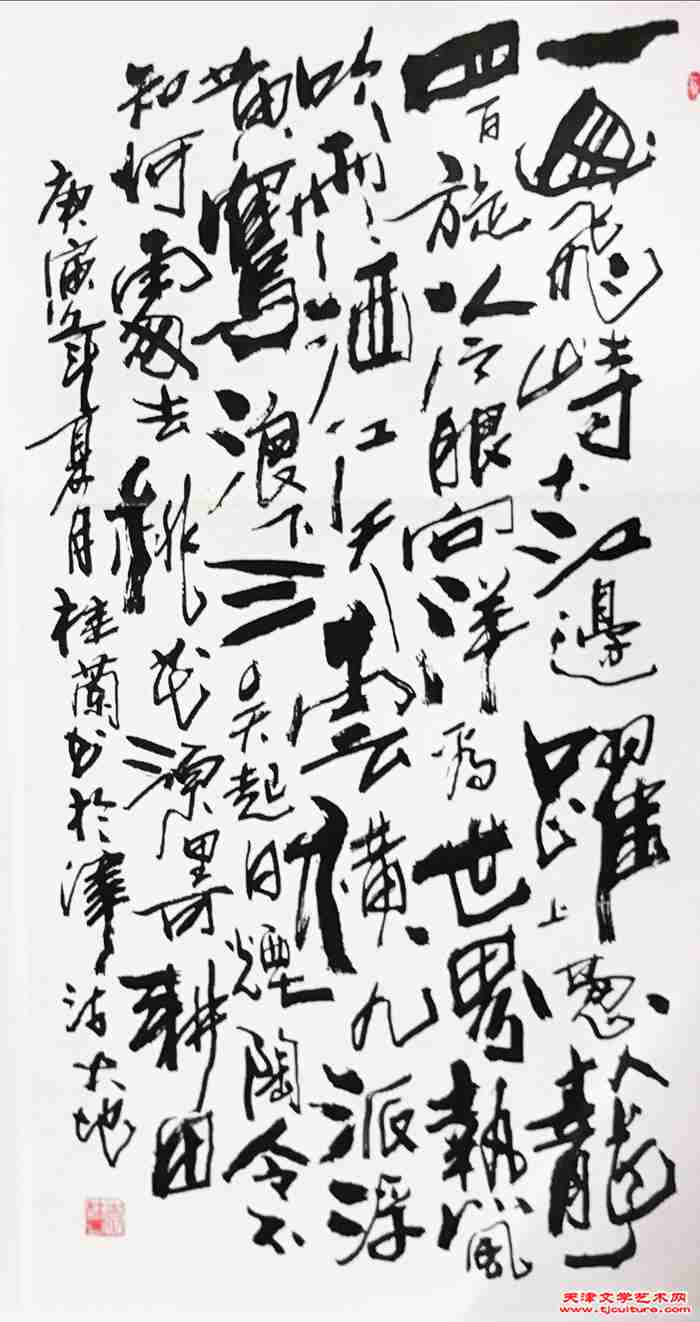 一山飛峙大江邊躍上葱龍
四百旋冷眼向洋看世界熱風
吹雨洒江天雲橫九派浮
黃鶴浪下三吴起白煙陶令不
知何處去桃花源里可耕田
庚寅年夏月桂蘭書於津沽大地
天津文学艺术网
www.tjculture.com